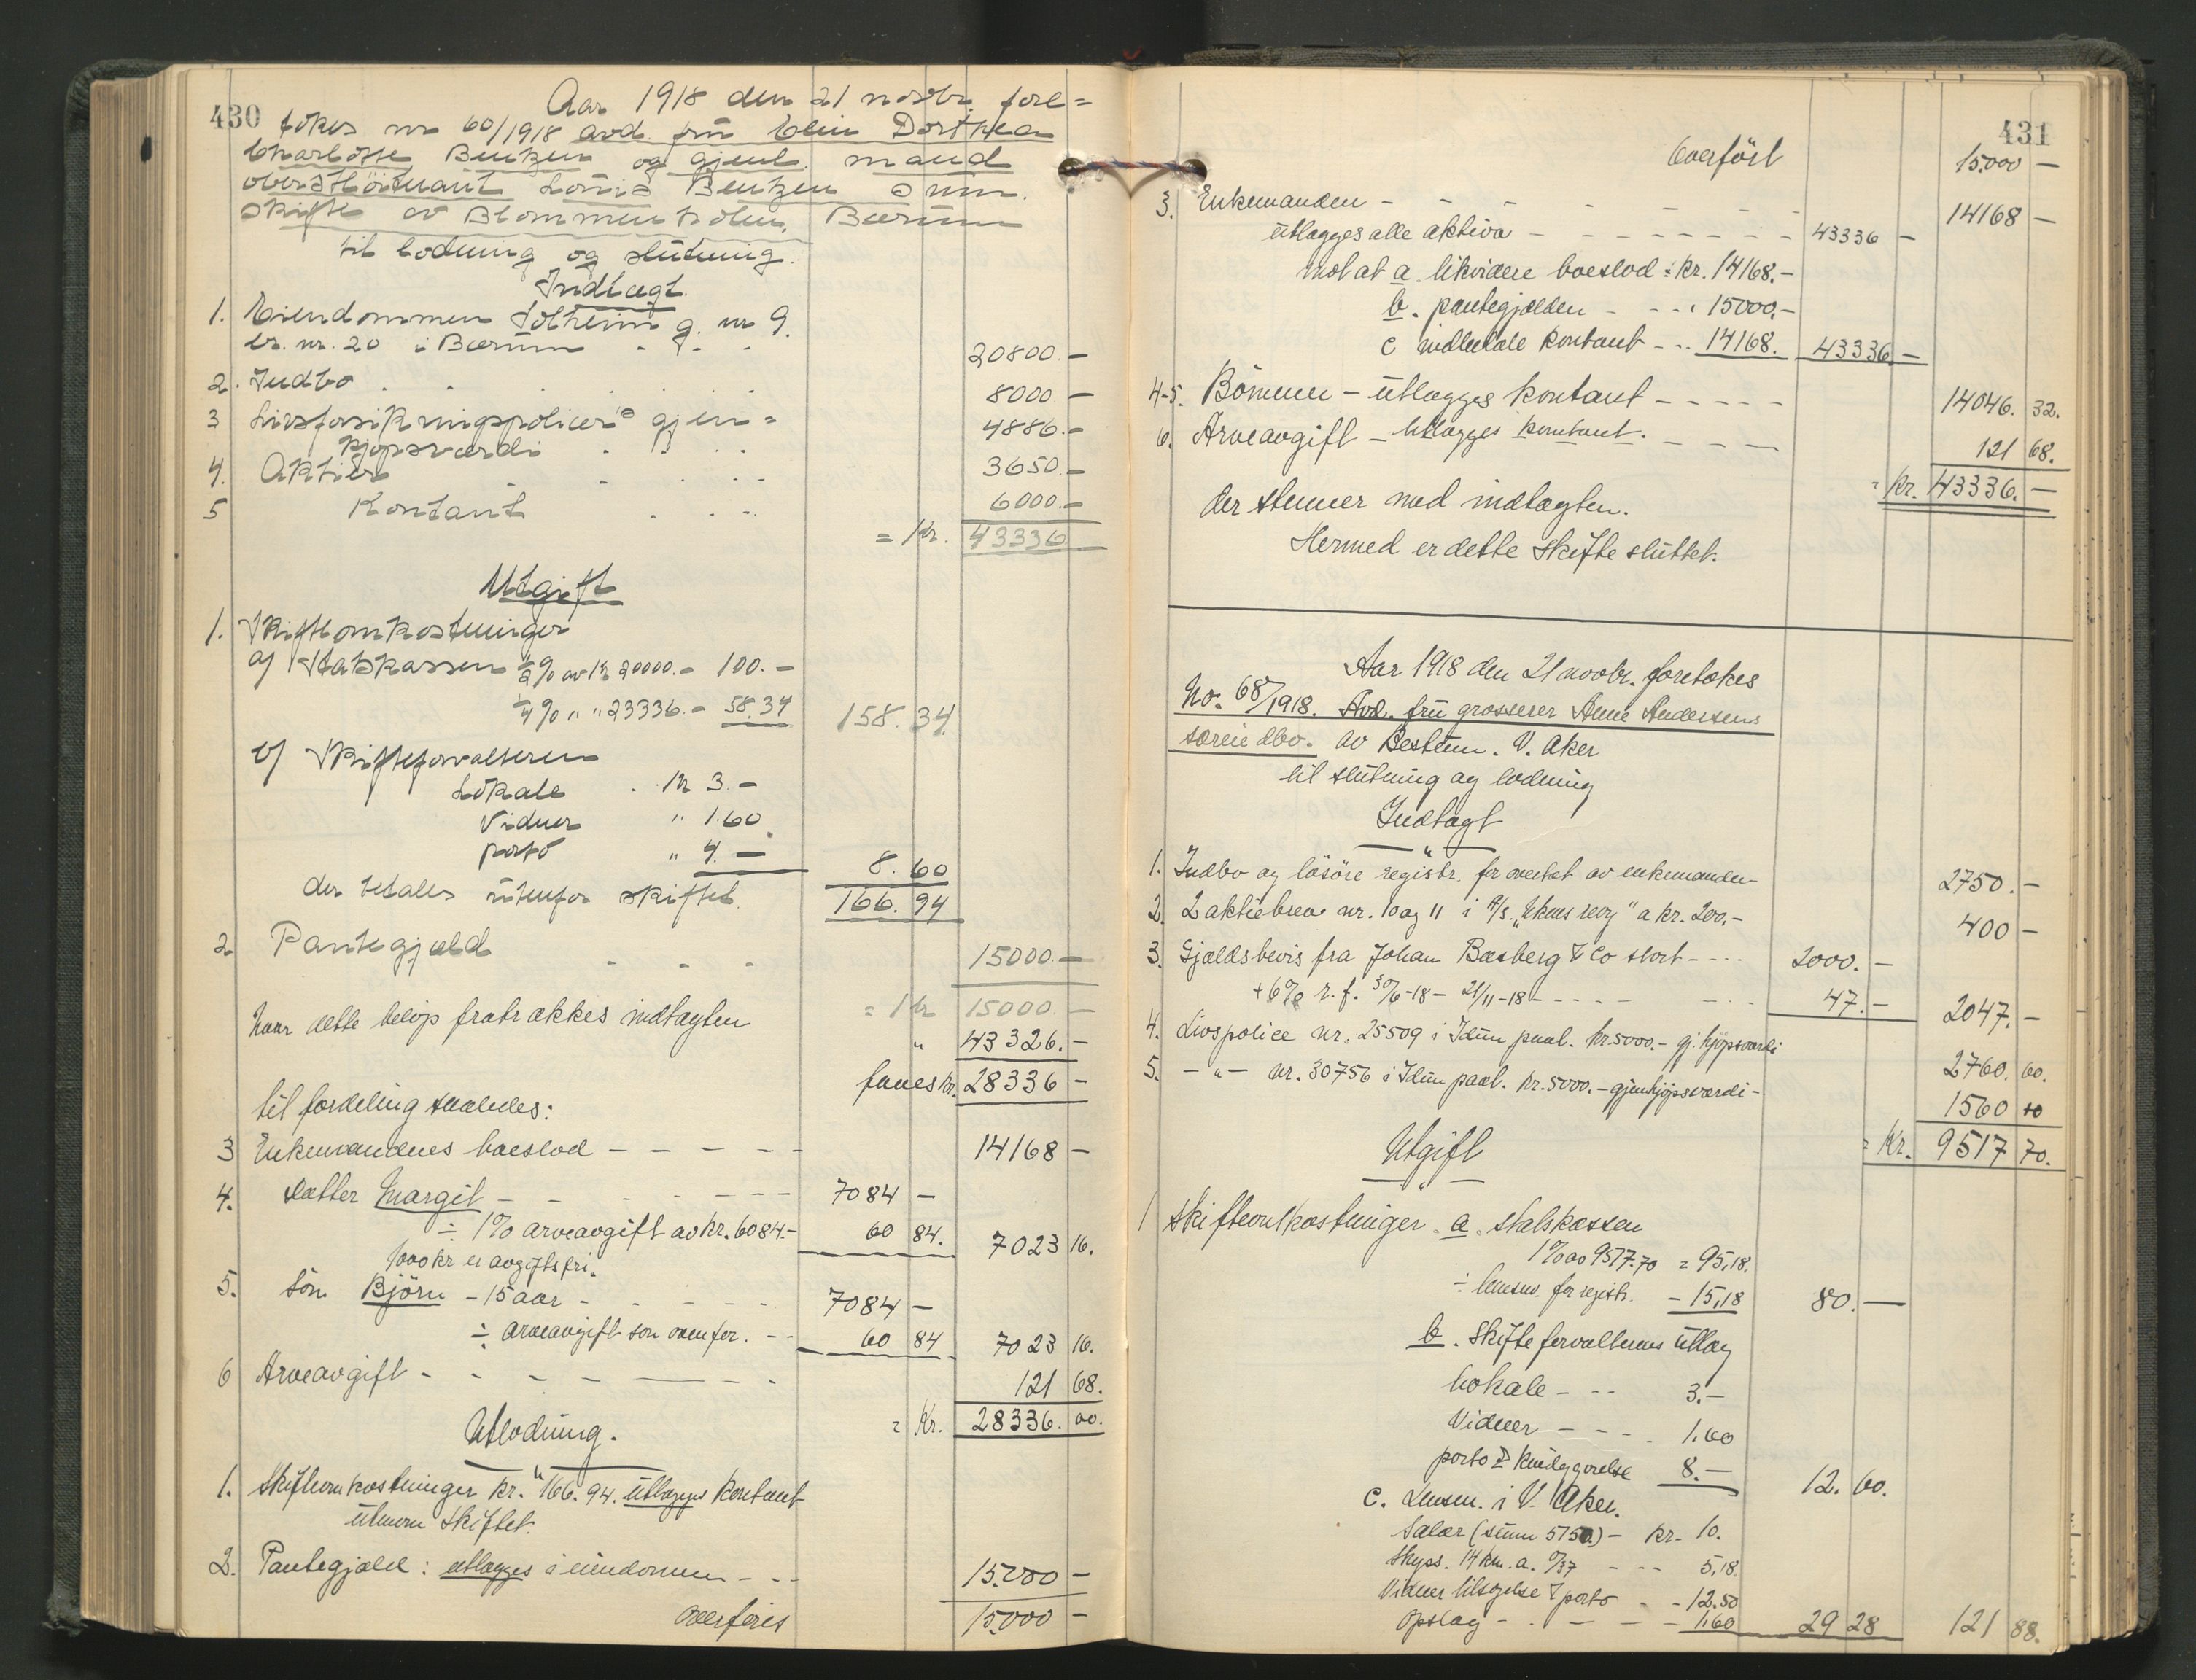 430
Aar 1918 den 21 novbr. fore=
tokes nr 60/1918 avd. fru Elein Dorthea
Charlotte Bentzen og gjenl. mand
oberstløitnant Louis Bentzen s min.
skifte av Blommenholm, Bærum
til lodning og slutning.
Indtægt
1. Eiendommen Solheim g. nr 9.
br. nr. 20 i Bærum 20800.—
2. Indbo 8000.—
3 Livsforsikringspolicer's gjen=
kjøpsværdi 4886.—
4. Aktier 3650.—
5 Kontant 6000.—
= Kr. 43336
Utgift
1. Skifteomkostninger
a) Statskassen ½% av kr 20000.— 100.—
¼% " " 23336.— 58.34 158.34
b) Skifteforvalteren
Lokale kr 3.—
Vidner " 1.60
porto " 4.— 8.60
der betales utenfor skiftet. 166.94
2 Pantegjæld 15000.—
= kr 15000.—
Naar dette beløp fratrækkes indtægten " 43326.—
faaes kr. 28336 —
til fordeling saaledes:
3 Enkemandens boeslod — — — — 14168 —
4. datter Margit — — — — 7084 —
÷ 1% arveavgift av kr. 6084.— 60 84. 7023 16.
1000 kr er avgiftsfri.
5. Søn Björn — 15 aar — 7084 —
÷ arveavgift som ovenfor. — 60 84 7023 16.
6 Arveavgift — — — — 121 68.
= Kr. 28336.00.
Utlodning.
1. Skifteomkostninger kr. 166.94. utlægges kontant
utenom skiftet.
2. Pantegjæld: utlægges i eiendommen — — 15.000 —
Overføres 15.000 —
431
Overført 15.000 —
3. Enkemanden — — — — — 14168 —
utlægges alle aktiva — — — — — 43336 —
mot at a. likvidere boeslod = kr. 14168.—
b. pantegjælden — — " 15000.—
c indbetale kontant — " 14168. 43336 —
4-5. Børnene — utlægges kontant — — — — 14046. 32.
6. Arveavgift — utlægges kontant. — — — 121 68.
= Kr. 43336. —
der stemmer med indtægten.
Hermed er dette skifte sluttet.
Aar 1918 den 21 novbr. foretokes
No. 68/1918. Avd. fru grosserer Anne Andersens
særeiedbo. av Bestum. V. Aker
til slutning og lodning
Indtægt
1. Indbo og løsøre registr. for overtat av enkemanden 2750.—
2. 2 aktiebreve nr. 10 og 11 i A/S „Ukens revy" a kr. 200.— 400 —
3. Gjældsbevis fra Johan Basberg & Co stort — — 2000.—
+ 6% r. f. 30/6-18 — 21/11-18 — — — — 47.— 2047.—
4. Livspolice nr. 25509 i Idun paal. kr. 5000.— gj. kjöpsværdi 2760. 60.
5. — " — nr. 30756 i Idun paal. kr. 5000. — gjenkjöpsværdi — 1560 10
= Kr. 9517 70.
Utgift
1 Skifteomkostninger a. statskassen
1% av 9517.70 = 95,18.
÷ lensm. for registr. — 15,18 80. —
b. Skifteforvalterens utlæg
Lokale — — 3.—
Vidner — — — 1.60
porto & kundgjørelse 8.— 12. 60.
c. Lensm. i V. Aker.
Salær (sum 5150.) — kr. 10.
Skyss. 14 km. a. 0/37 — — 5,18.
Vidner tilsigelse & porto — 12.50
Opslag — . — — — 1.60 29 28 121 88.